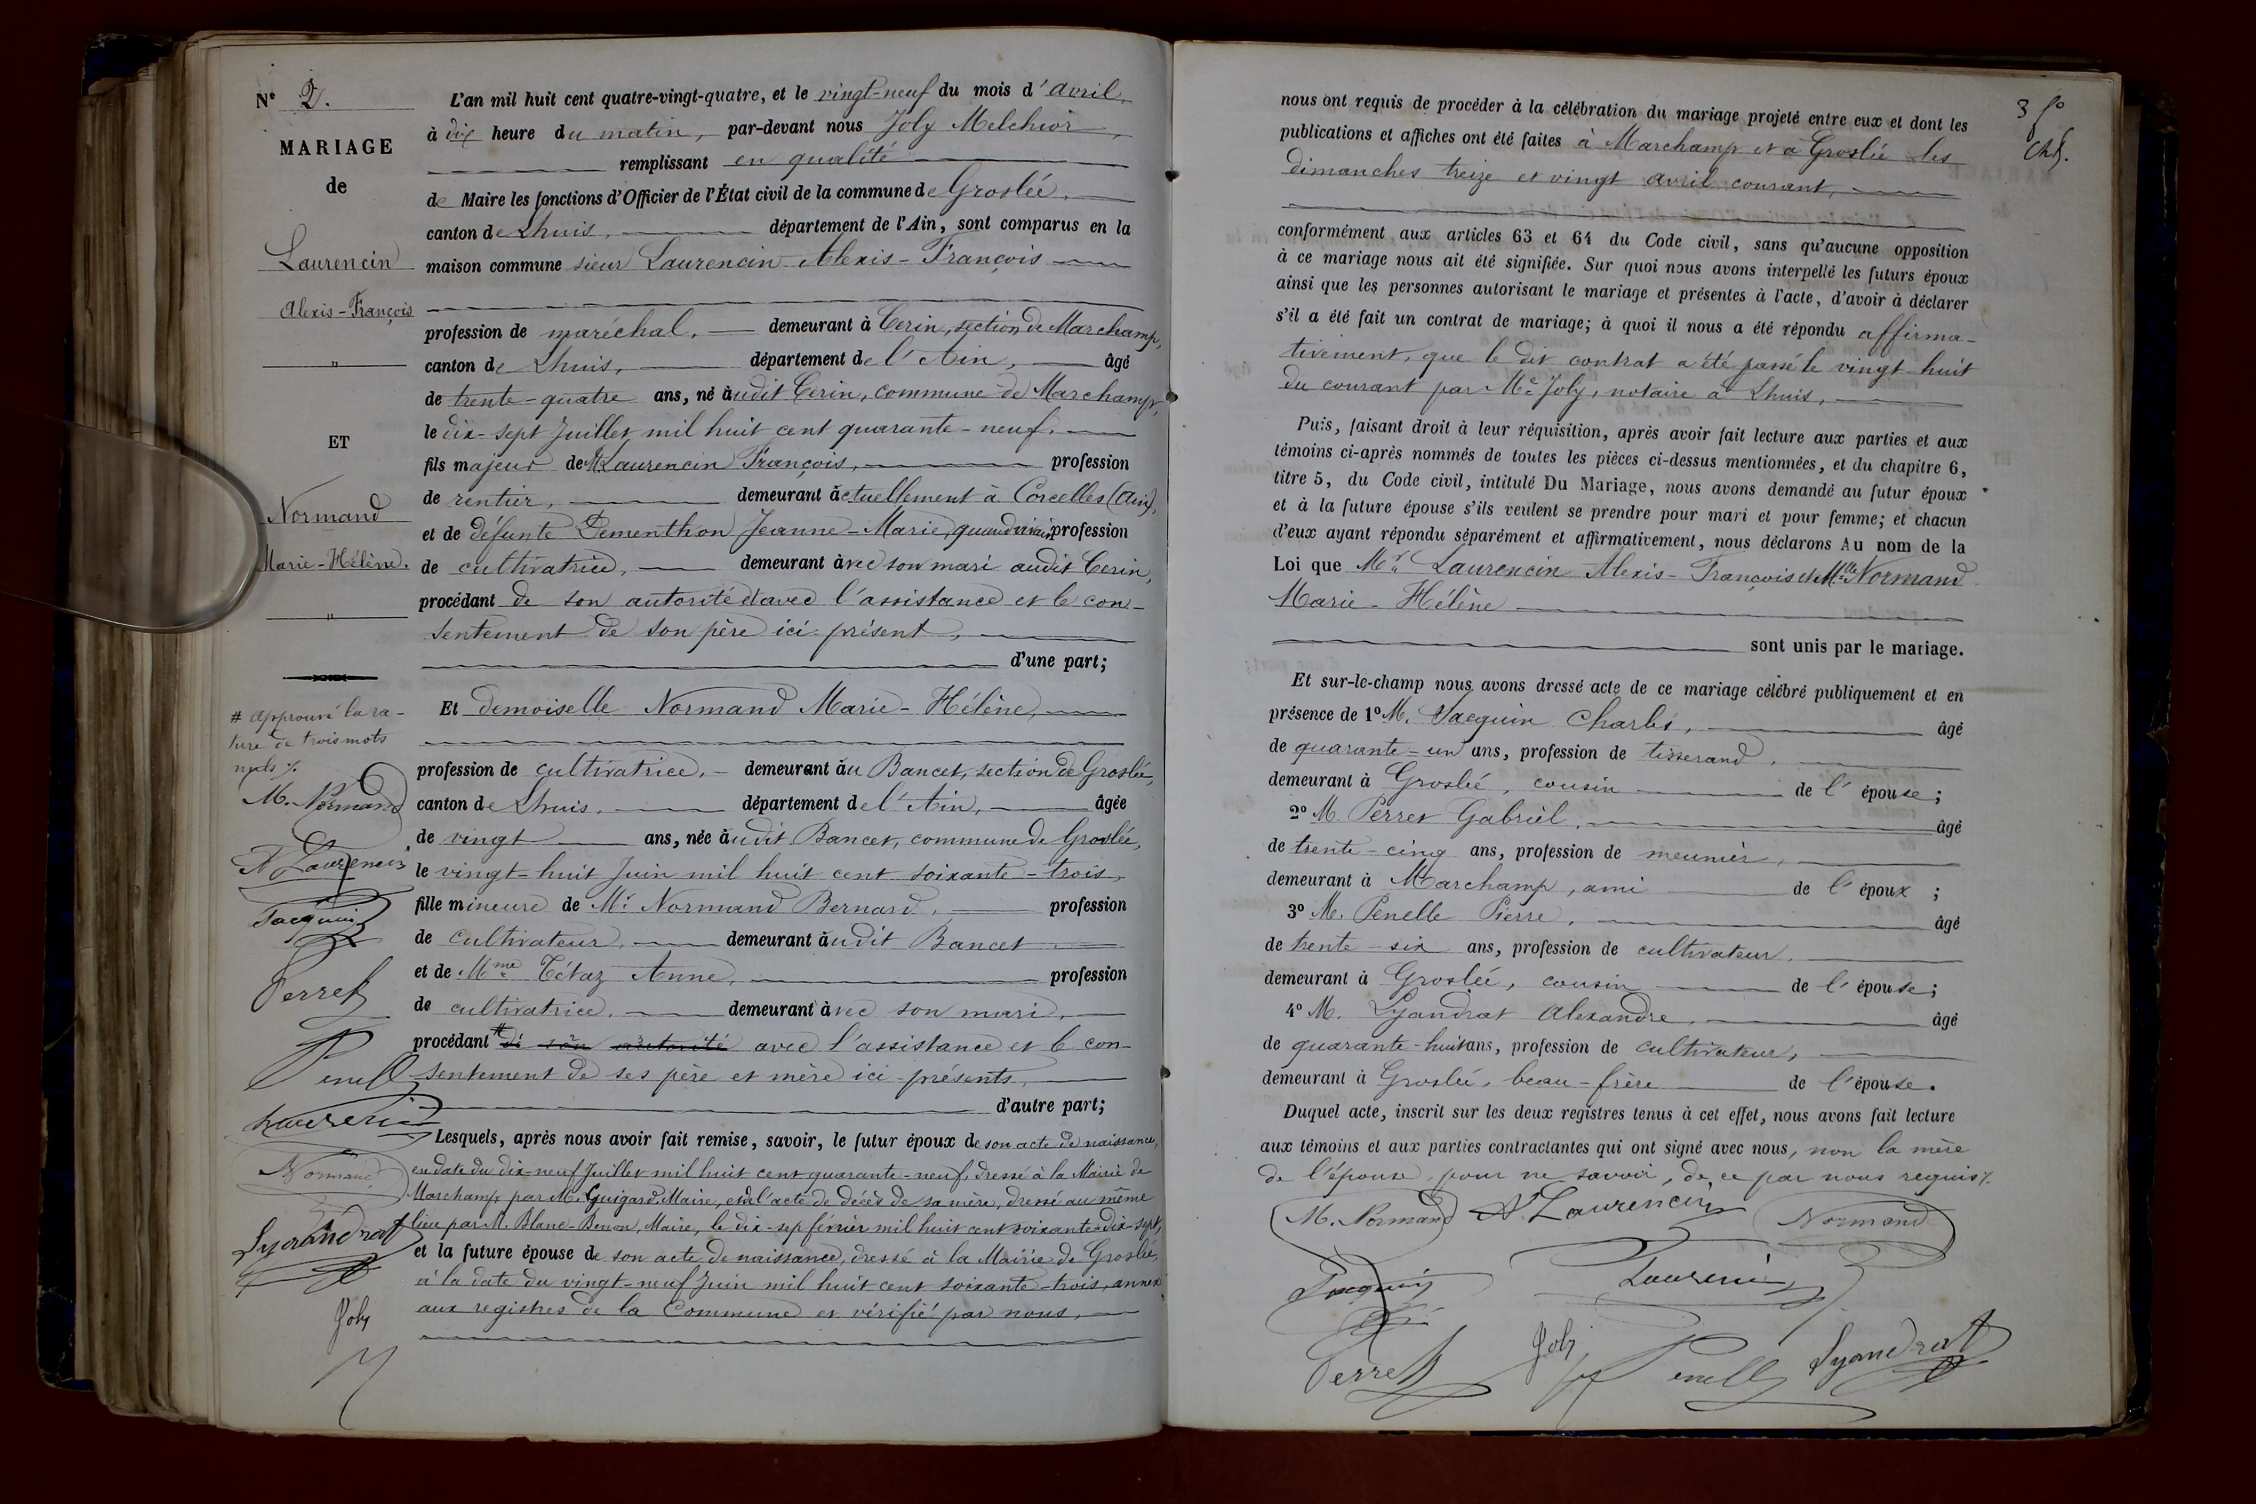 N° 2.
MARIAGE
de
Laurencin
Alexis-François
"
ET
Normand
Marie-Hélène.
"
# Approuvé la ra-
ture de trois mots
nuls ./.
M. Normand
A Laurencin
Jacquin
Perret
Penelle
Laurencin
Normand
Lyandrat
Joly
L'an mil huit cent quatre-vingt-quatre, et le vingt-neuf du mois d'avril,
à dix heure du matin, par-devant nous Joly Melchior,
remplissant en qualité
de Maire les fonctions d'Officier de l'État civil de la commune de Groslée,
canton de Lhuis, département de l'Ain, sont comparus en la
maison commune sieur Laurencin Alexis-François
profession de maréchal, demeurant à Cerin, section de Marchamp,
canton de Lhuis, département de l'Ain, âgé
de trente-quatre ans, né audit Cerin, commune de Marchamp,
le dix-sept Juillet mil huit cent quarante-neuf,
fils majeur de M. Laurencin François, profession
de rentier, demeurant actuellement à Corcelles (Ain),
et de défunte Dementhon Jeanne-Marie, quand vivait profession
de cultivatrice, demeurant avec son mari audit Cerin,
procédant de son autorité et avec l'assistance et le con-
sentement de son père ici présent,
d'une part;
Et demoiselle Normand Marie-Hélène,
profession de cultivatrice, demeurant au Bancet, section de Groslée,
canton de Lhuis, département de l'Ain, âgée
de vingt ans, née audit Bancet, commune de Groslée,
le vingt-huit Juin mil huit cent soixante-trois,
fille mineure de Mr Normand Bernard, profession
de cultivateur, demeurant audit Bancet
et de Mme Tétaz Anne, profession
de cultivatrice, demeurant avec son mari,
procédant # de son autorité avec l'assistance et le con-
sentement de ses père et mère ici présents,
d'autre part;
Lesquels, après nous avoir fait remise, savoir, le futur époux de son acte de naissance,
en date du dix-neuf Juillet mil huit cent quarante-neuf, dressé à la Mairie de
Marchamp par M. Guigard Maire, et de l'acte de décès de sa mère, dressé au même
lieu par M. Blanc-Benon, Maire, le dix-sept février mil huit cent soixante-dix-sept,
et la future épouse de son acte de naissance, dressé à la Mairie de Groslée,
à la date du vingt-neuf Juin mil huit cent soixante-trois, annexé
aux registres de la Commune et vérifié par nous,
3 fo
Chd.
nous ont requis de procéder à la célébration du mariage projeté entre eux et dont les
publications et affiches ont été faites à Marchamp et à Groslée les
dimanches treize et vingt avril courant,
conformément aux articles 63 et 64 du Code civil, sans qu'aucune opposition
à ce mariage nous ait été signifiée. Sur quoi nous avons interpellé les futurs époux
ainsi que les personnes autorisant le mariage et présentes à l'acte, d'avoir à déclarer
s'il a été fait un contrat de mariage; à quoi il nous a été répondu affirma-
tivement, que le dit contrat a été passé le vingt huit
du courant par Me Joly, notaire à Lhuis,
Puis, faisant droit à leur réquisition, après avoir fait lecture aux parties et aux
témoins ci-après nommés de toutes les pièces ci-dessus mentionnées, et du chapitre 6,
titre 5, du Code civil, intitulé Du Mariage, nous avons demandé au futur époux
et à la future épouse s'ils veulent se prendre pour mari et pour femme; et chacun
d'eux ayant répondu séparément et affirmativement, nous déclarons Au nom de la
Loi que Mr Laurencin Alexis-François et Mlle Normand
Marie-Hélène
sont unis par le mariage.
Et sur-le-champ nous avons dressé acte de ce mariage célébré publiquement et en
présence de 1° M. Jacquin Charles, âgé
de quarante-un ans, profession de tisserand,
demeurant à Groslée, cousin de l'épouse;
2° M. Perret Gabriel, âgé
de trente-cinq ans, profession de meunier,
demeurant à Marchamp, ami de l'époux;
3° M. Penelle Pierre, âgé
de trente-six ans, profession de cultivateur,
demeurant à Groslée, cousin de l'épouse;
4° M. Lyandrat Alexandre, âgé
de quarante-huit ans, profession de cultivateur,
demeurant à Groslée, beau-frère de l'épouse.
Duquel acte, inscrit sur les deux registres tenus à cet effet, nous avons fait lecture
aux témoins et aux parties contractantes qui ont signé avec nous, non la mère
de l'épouse, pour ne savoir, de ce par nous requis ./.
M. Normand A. Laurencin Normand
Jacquin Laurencin
Perret Joly Penelle Lyandrat